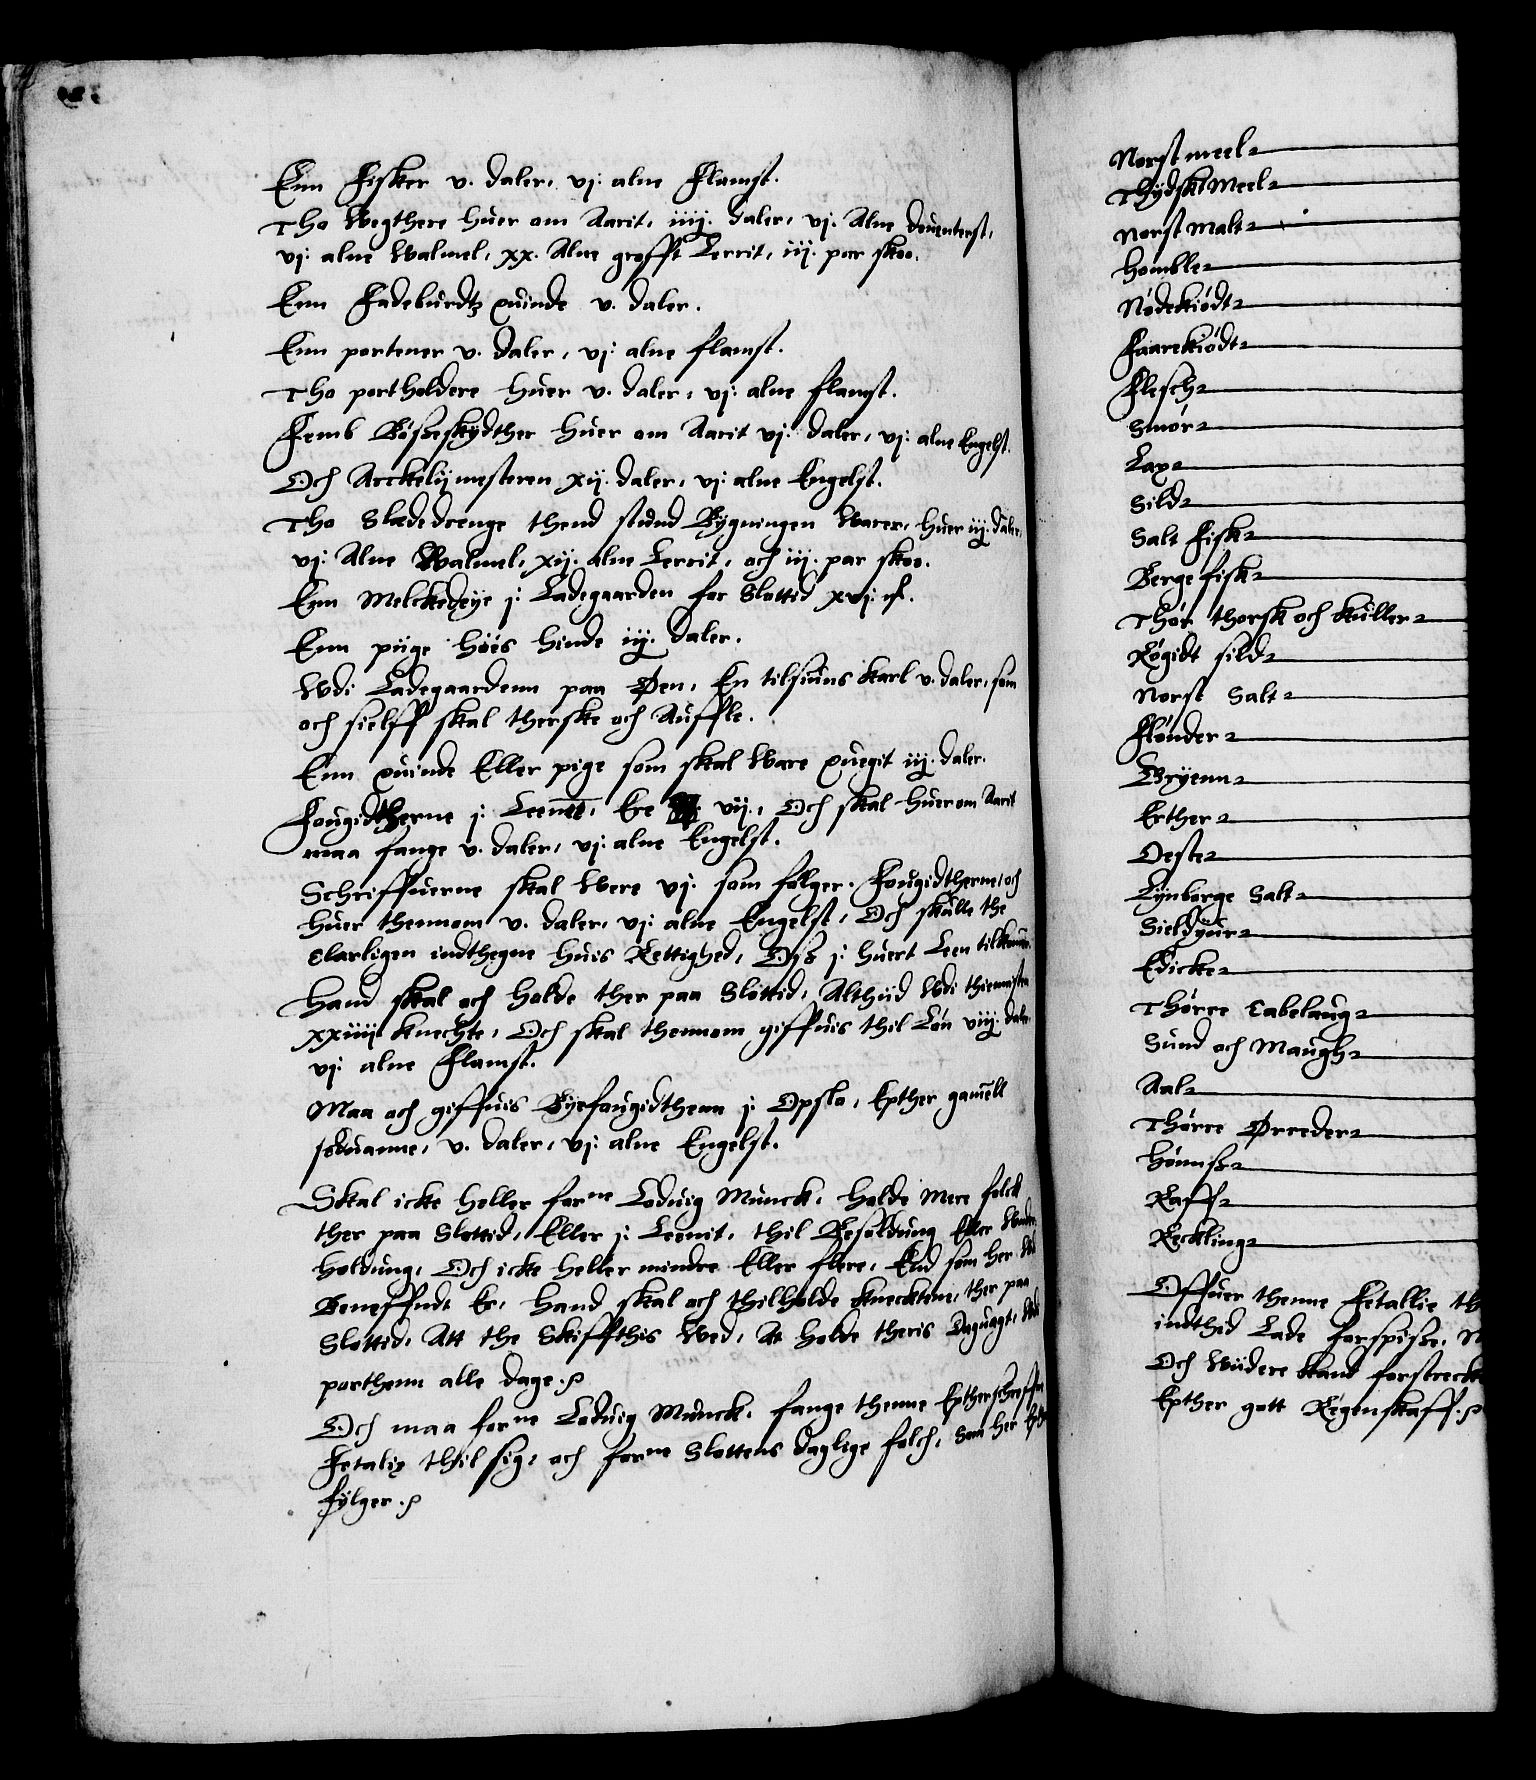 Enn Fisker v. daler, vj: alne Flamst.
Tho Wegthere huer om Aarit, iiij. daler, vj. Alne deuenterst,
vj: alne Walmel, xx. Alne grofft Lerrit, iij. par skoo.
Enn Fadeburdtz quinde v. daler.
Enn portener v. daler, vj: alne flamst.
Tho portholdere huer v. daler, vj: alne flamst.
Femb Bøsseskydther huer om Aarit vj. daler, vj: alne Engelst.
Och Arckelijmesteren xij. daler, vj: alne Engelst.
Tho Slededrenge thend stund Bygningen Warer, huer iij. daler,
vj: Alne Walmel, xij. alne Lerrit, och iij. par skoo.
Enn Melckedeye j: Ladegaarden for Slottid xvj:
Enn piige hoes hinde iij. daler.
Wdi Ladegaardenn paa Øen, En tilsiuns karl v. daler, som
och sielff skal therske och Auffle.
Enn quinde Eller pige som skal Ware quegit iij. daler.
Fougidtherne j: Leenno, Ere vij., Och skal huer om Aarit
maa fange v. daler, vj: alne Engelst.
Schriffuerne skal Were vj. som følger. Fougidtherne, och
huer thennom v. daler, vj: alne Engelst, Och skulle the
Clarligen indthegne huis Rettighed, j: huert Leen
Hand skal och holde ther paa Slottid, Althiid Wdi thienisten
xxiiij knechte, Och skal thennom giffuis thil Løn viij. daler
vj: alne Flamst.
Maa och giffuis Byefougidthenn j: Opslo, Epther gamell
sedwanne, v. daler, vj: alne Engelst.
Skal icke heller forne Loduig Munck, holde Mere folck
ther paa Slottid, Eller j: Leenit, thil Besoldung Eller Wnder
holdung, Och icke heller mindre Eller flere, End som her
Beneffndt Er, Hand skal och thilholde knecktene, ther paa
Slottid, Att the Skiffthis Wed, At holde theris Daguagt, Wdi
porthenn alle dage.
Och maa forne Loduig Munck, fange thenne
Fetalie thil sig, och forne Slottens daglige folch, Som her
fylger.
Norst meel
Thydskt Meel
Norst Malt
Homble
Nødekiødt
Faarekiødt
Flesch
Smør
Lax
Sild
Salt Fisk
Berge fisk
Thør thorsk och kuller
Røgidt sild
Norst Salt
Flønder
Gryenn
Erther
Oeste
Lynborge Salt
Sieldyur
Edicke
Thørre Cabelaug
Sund och Maugh
Aal
Thørre Ørreder
Hønnsz
Raff
Reckling
Offuer thenne Fetallie
indthid Lade forspisse,
Och Wiidere kand forstreck
Epther gott Regenskaff.